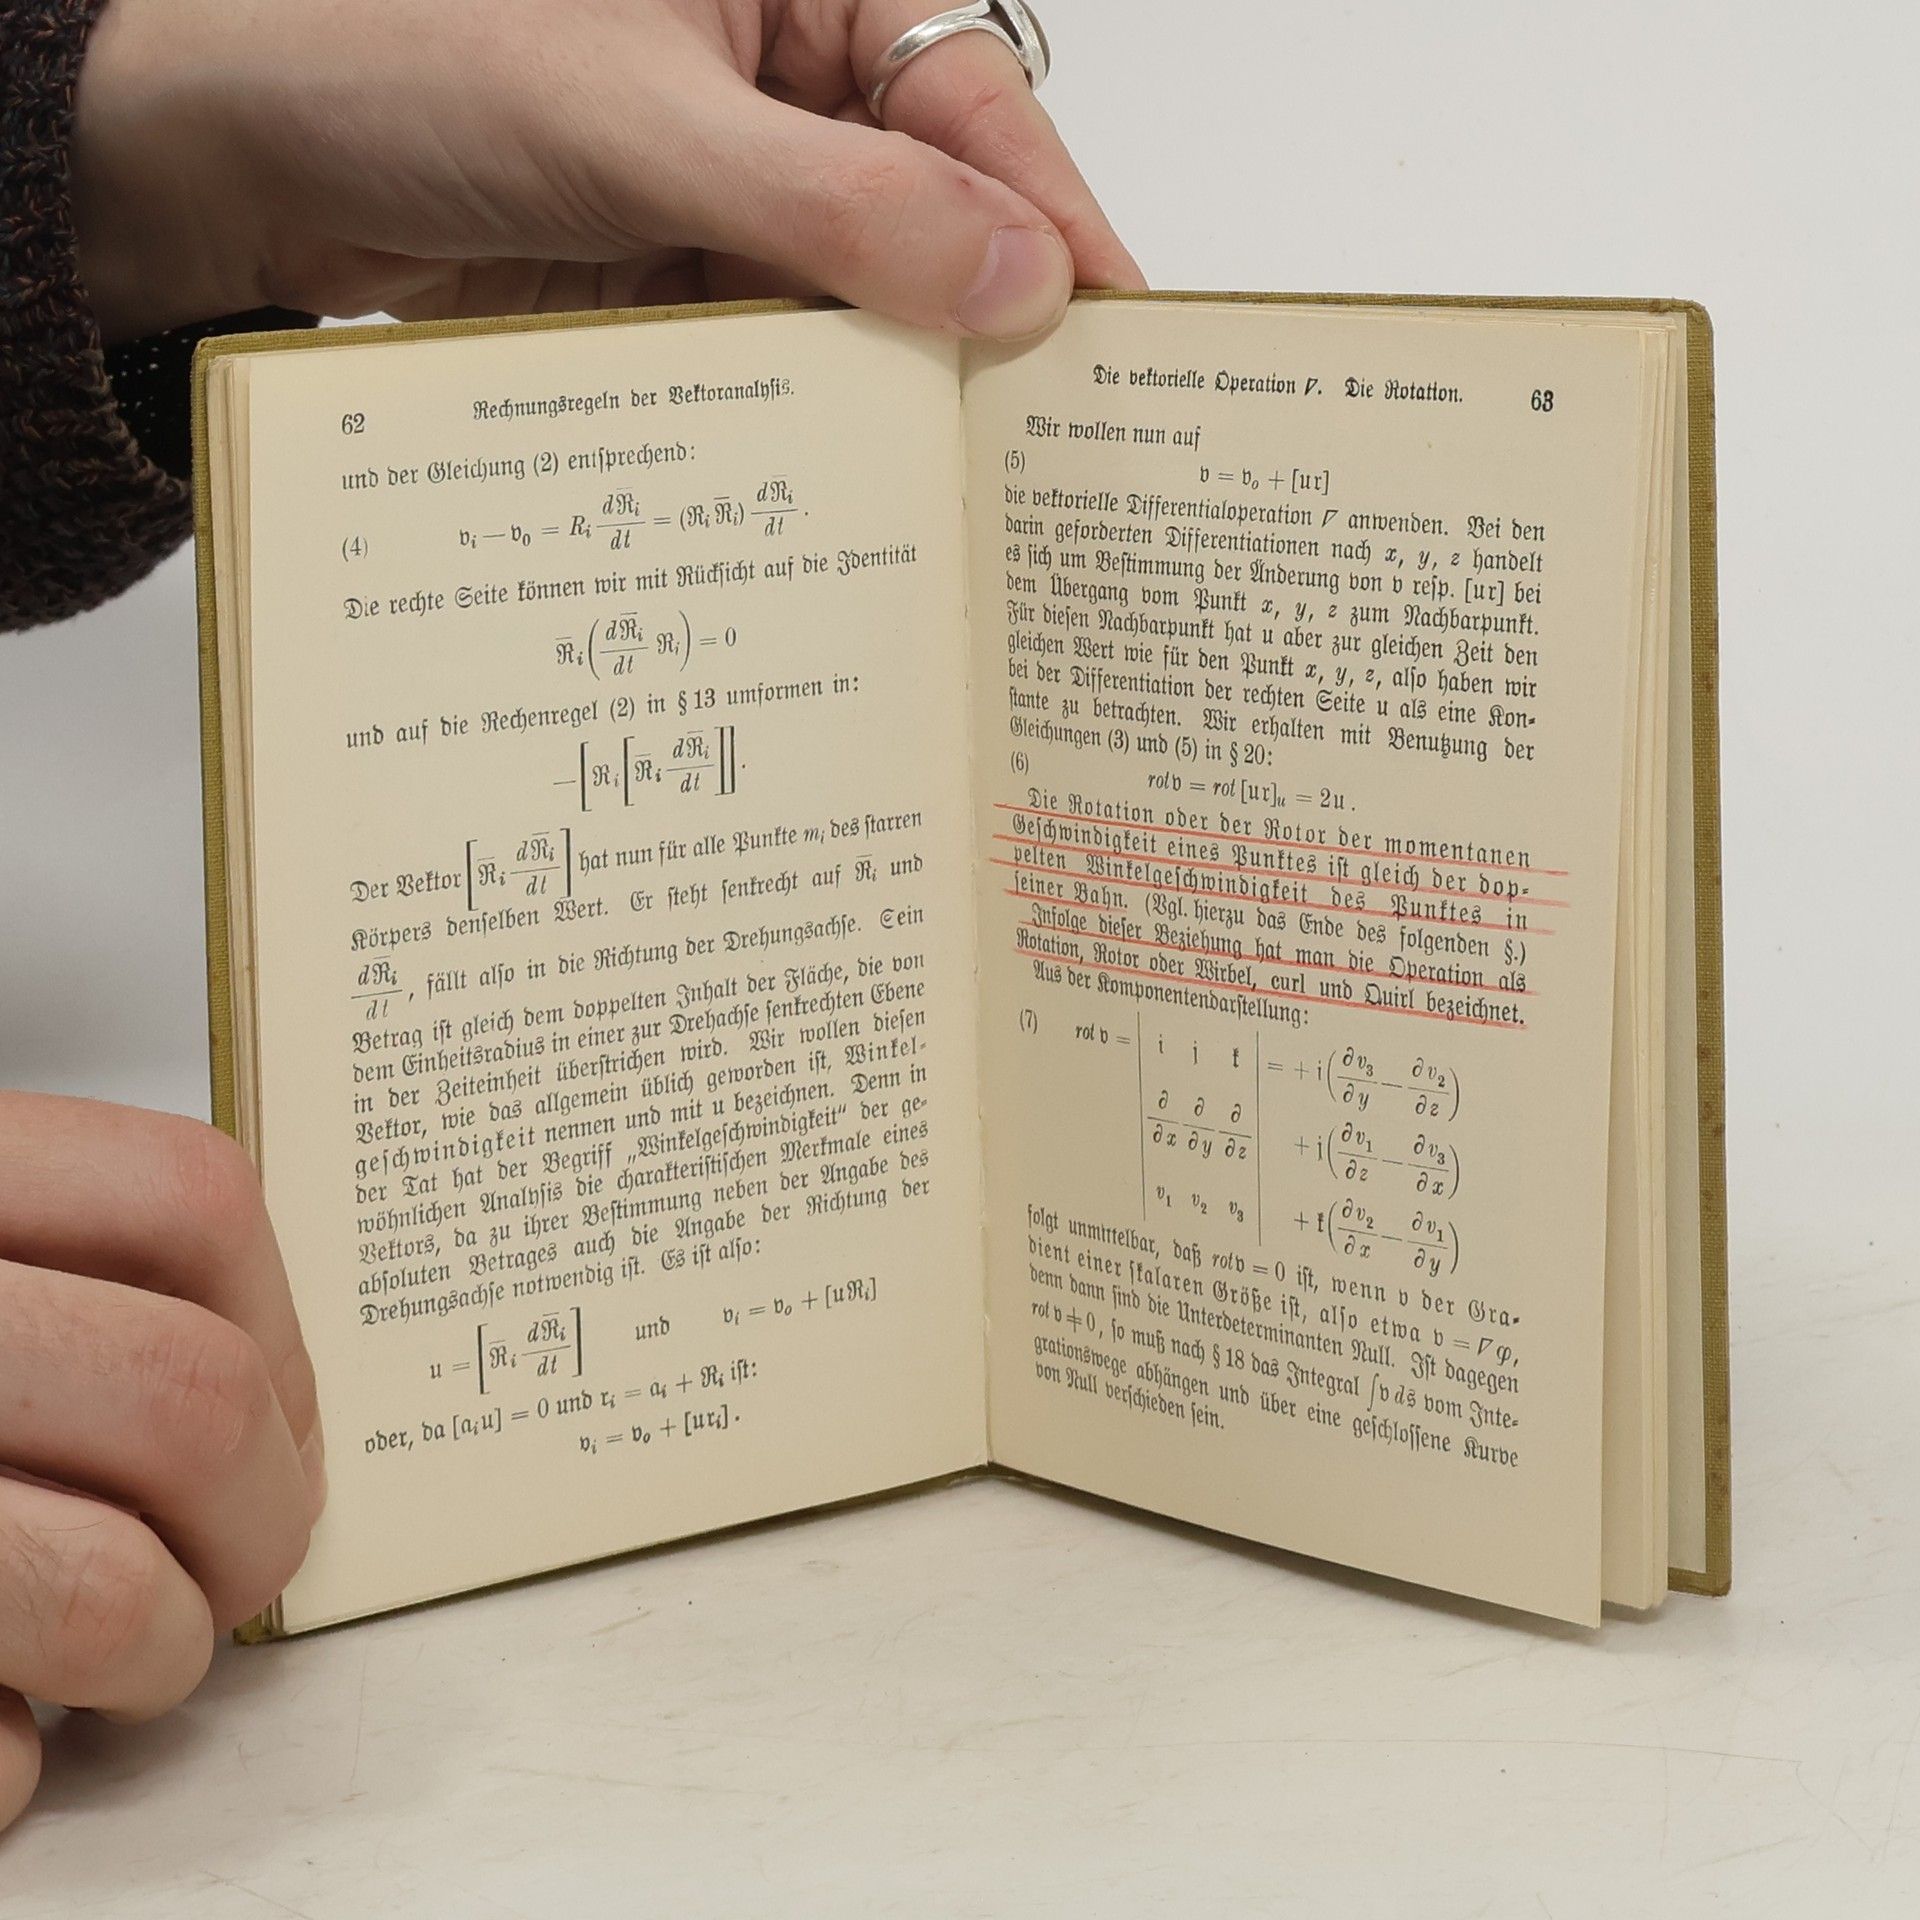 62 Rechnungsregeln der Vektoranalysis.
und der Gleichung (2) entsprechend:
(4) 𝔳ᵢ — 𝔳₀ = Rᵢ dℜ̄ᵢ/dt = (ℜᵢ ℜ̄ᵢ) dℜ̄ᵢ/dt .
Die rechte Seite können wir mit Rücksicht auf die Identität
ℜ̄ᵢ (dℜ̄ᵢ/dt ℜᵢ) = 0
und auf die Rechenregel (2) in § 13 umformen in:
—[ℜᵢ[ℜ̄ᵢ dℜ̄ᵢ/dt]].
Der Vektor [ℜ̄ᵢ dℜ̄ᵢ/dt] hat nun für alle Punkte mᵢ des starren
Körpers denselben Wert. Er steht senkrecht auf ℜ̄ᵢ und
dℜ̄ᵢ/dt, fällt also in die Richtung der Drehungsachse. Sein
Betrag ist gleich dem doppelten Inhalt der Fläche, die von
dem Einheitsradius in einer zur Drehachse senkrechten Ebene
in der Zeiteinheit überstrichen wird. Wir wollen diesen
Vektor, wie das allgemein üblich geworden ist, Winkel-
geschwindigkeit nennen und mit 𝔲 bezeichnen. Denn in
der Tat hat der Begriff „Winkelgeschwindigkeit“ der ge-
wöhnlichen Analysis die charakteristischen Merkmale eines
Vektors, da zu ihrer Bestimmung neben der Angabe des
absoluten Betrages auch die Angabe der Richtung der
Drehungsachse notwendig ist. Es ist also:
𝔲 = [ℜ̄ᵢ dℜ̄ᵢ/dt] und 𝔳ᵢ = 𝔳₀ + [𝔲ℜᵢ]
oder, da [𝔞ᵢ𝔲] = 0 und 𝔯ᵢ = 𝔞ᵢ + ℜᵢ ist:
𝔳ᵢ = 𝔳₀ + [𝔲𝔯ᵢ].
Die vektorielle Operation ∇. Die Rotation. 63
Wir wollen nun auf
(5) 𝔳 = 𝔳₀ + [𝔲𝔯]
die vektorielle Differentialoperation ∇ anwenden. Bei den
darin geforderten Differentiationen nach x, y, z handelt
es sich um Bestimmung der Änderung von 𝔳 resp. [𝔲𝔯] bei
dem Übergang vom Punkt x, y, z zum Nachbarpunkt.
Für diesen Nachbarpunkt hat 𝔲 aber zur gleichen Zeit den
gleichen Wert wie für den Punkt x, y, z, also haben wir
bei der Differentiation der rechten Seite 𝔲 als eine Kon-
stante zu betrachten. Wir erhalten mit Benutzung der
Gleichungen (3) und (5) in § 20:
(6) rot 𝔳 = rot [𝔲𝔯]ᵤ = 2𝔲 .
Die Rotation oder der Rotor der momentanen
Geschwindigkeit eines Punktes ist gleich der dop-
pelten Winkelgeschwindigkeit des Punktes in
seiner Bahn. (Vgl. hierzu das Ende des folgenden §.)
Infolge dieser Beziehung hat man die Operation als
Rotation, Rotor oder Wirbel, curl und Quirl bezeichnet.
Aus der Komponentendarstellung:
(7) rot 𝔳 = | 𝔦 𝔧 𝔨 | = + 𝔦(∂v₃/∂y — ∂v₂/∂z)
| ∂/∂x ∂/∂y ∂/∂z | + 𝔧(∂v₁/∂z — ∂v₃/∂x)
| v₁ v₂ v₃ | + 𝔨(∂v₂/∂x — ∂v₁/∂y)
folgt unmittelbar, daß rot 𝔳 = 0 ist, wenn 𝔳 der Gra-
dient einer skalaren Größe ist, also etwa 𝔳 = ∇φ,
denn dann sind die Unterdeterminanten Null. Ist dagegen
rot 𝔳 ≠ 0, so muß nach § 18 das Integral ∫𝔳 d𝔰 vom Inte-
grationswege abhängen und über eine geschlossene Kurve
von Null verschieden sein.